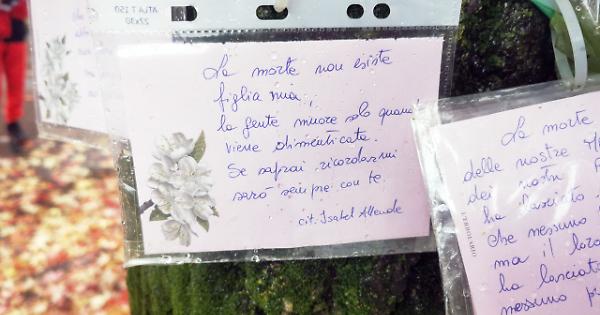 ATLA T 150
22x30
La morte non esiste
figlia mia,
la gente muore solo quando
viene dimenticata.
Se saprai ricordarmi
sarò sempre con te
cit. Isabel Allende
La morte
delle nostre
dei nostri
ha lasciato
che nessuno
ma il loro
ha lasciato
nessuno
L'ERBOLARIO